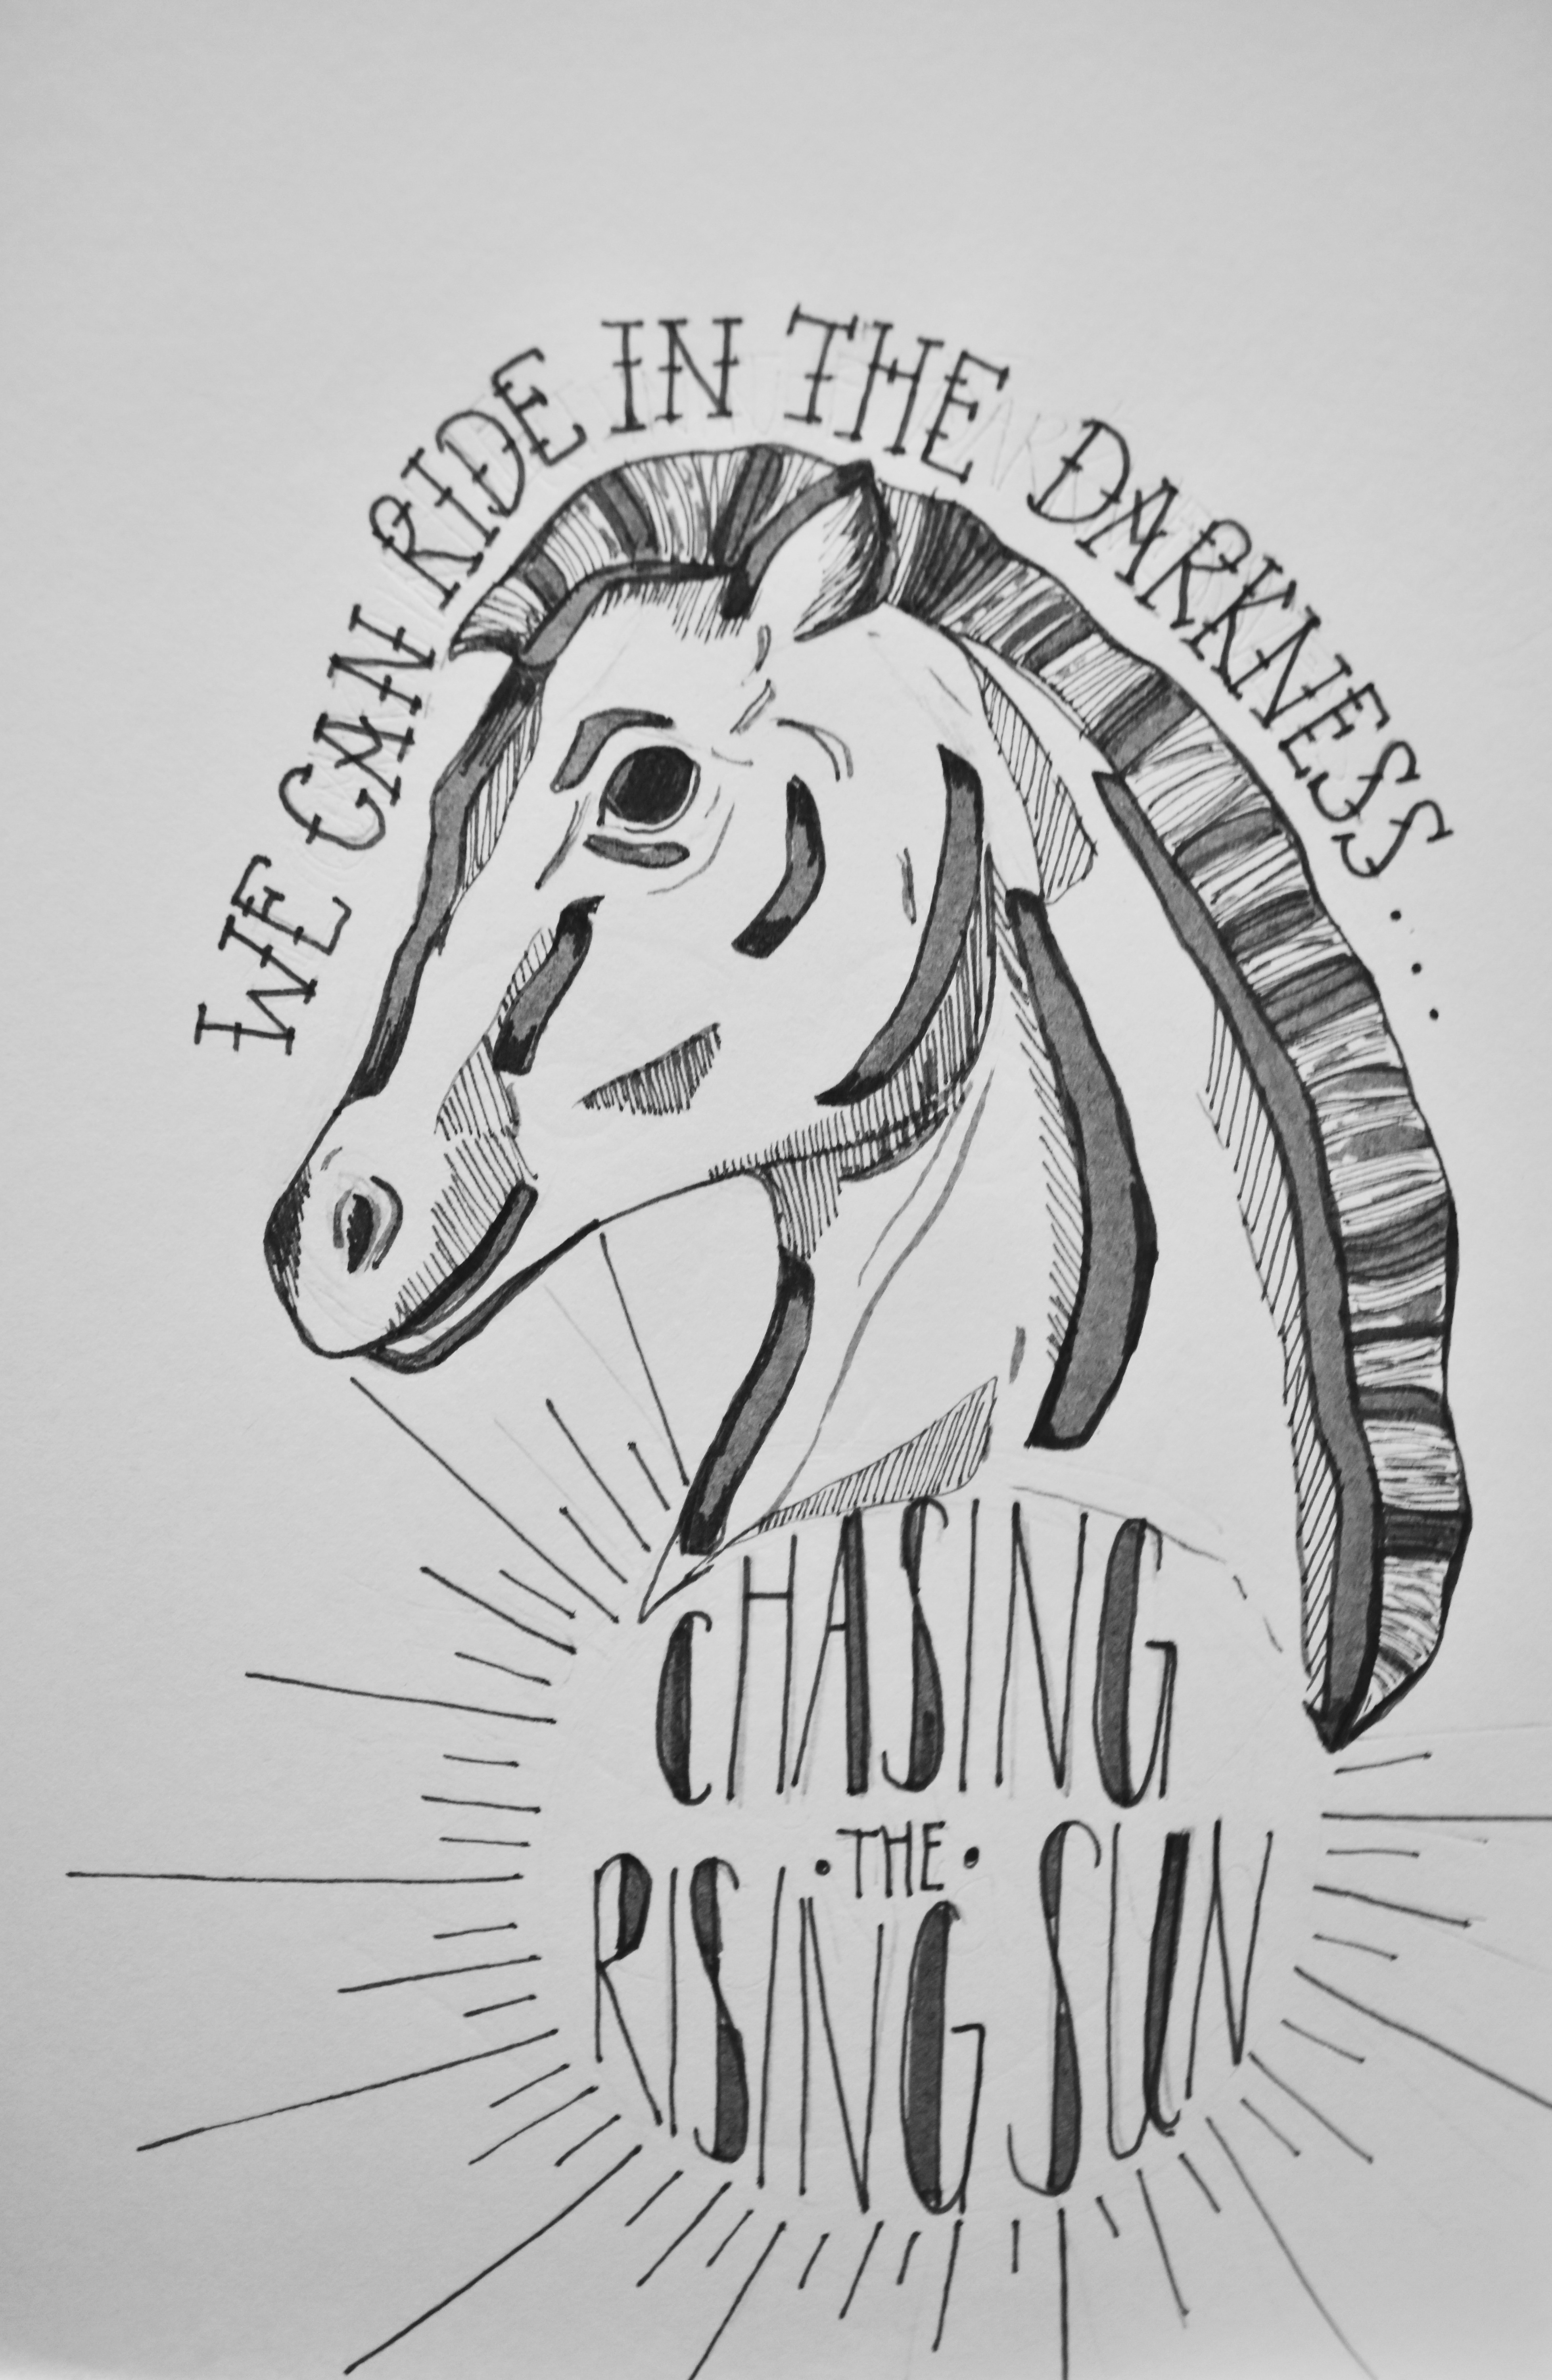 WE CAN RIDE IN THE DARKNESS...
CHASING
• THE •
RISING SUN